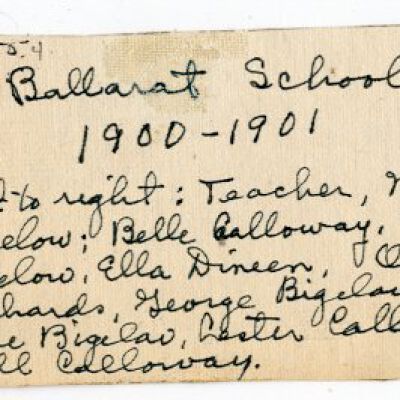 5-4
Ballarat School
1900-1901
to right: Teacher,
elow; Belle Calloway,
elow, Ella Dineen, O
hards, George Bigelow
e Bigelow, Lester Call
ll Calloway.